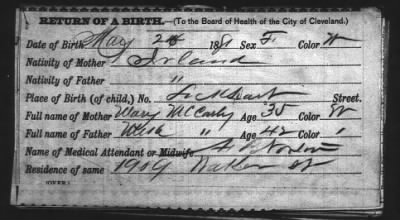 RETURN OF A BIRTH.—(To the Board of Health of the City of Cleveland.)
Date of Birth May 188 Sex F. Color W
Nativity of Mother Irland
Nativity of Father "
Place of Birth (of child,) No. Lockhart Street.
Full name of Mother Mary McCarty Age 35 Color W
Full name of Father " Age 42 "
Name of Medical Attendant or Midwife
Residence of same 1909 st
(OVER.)